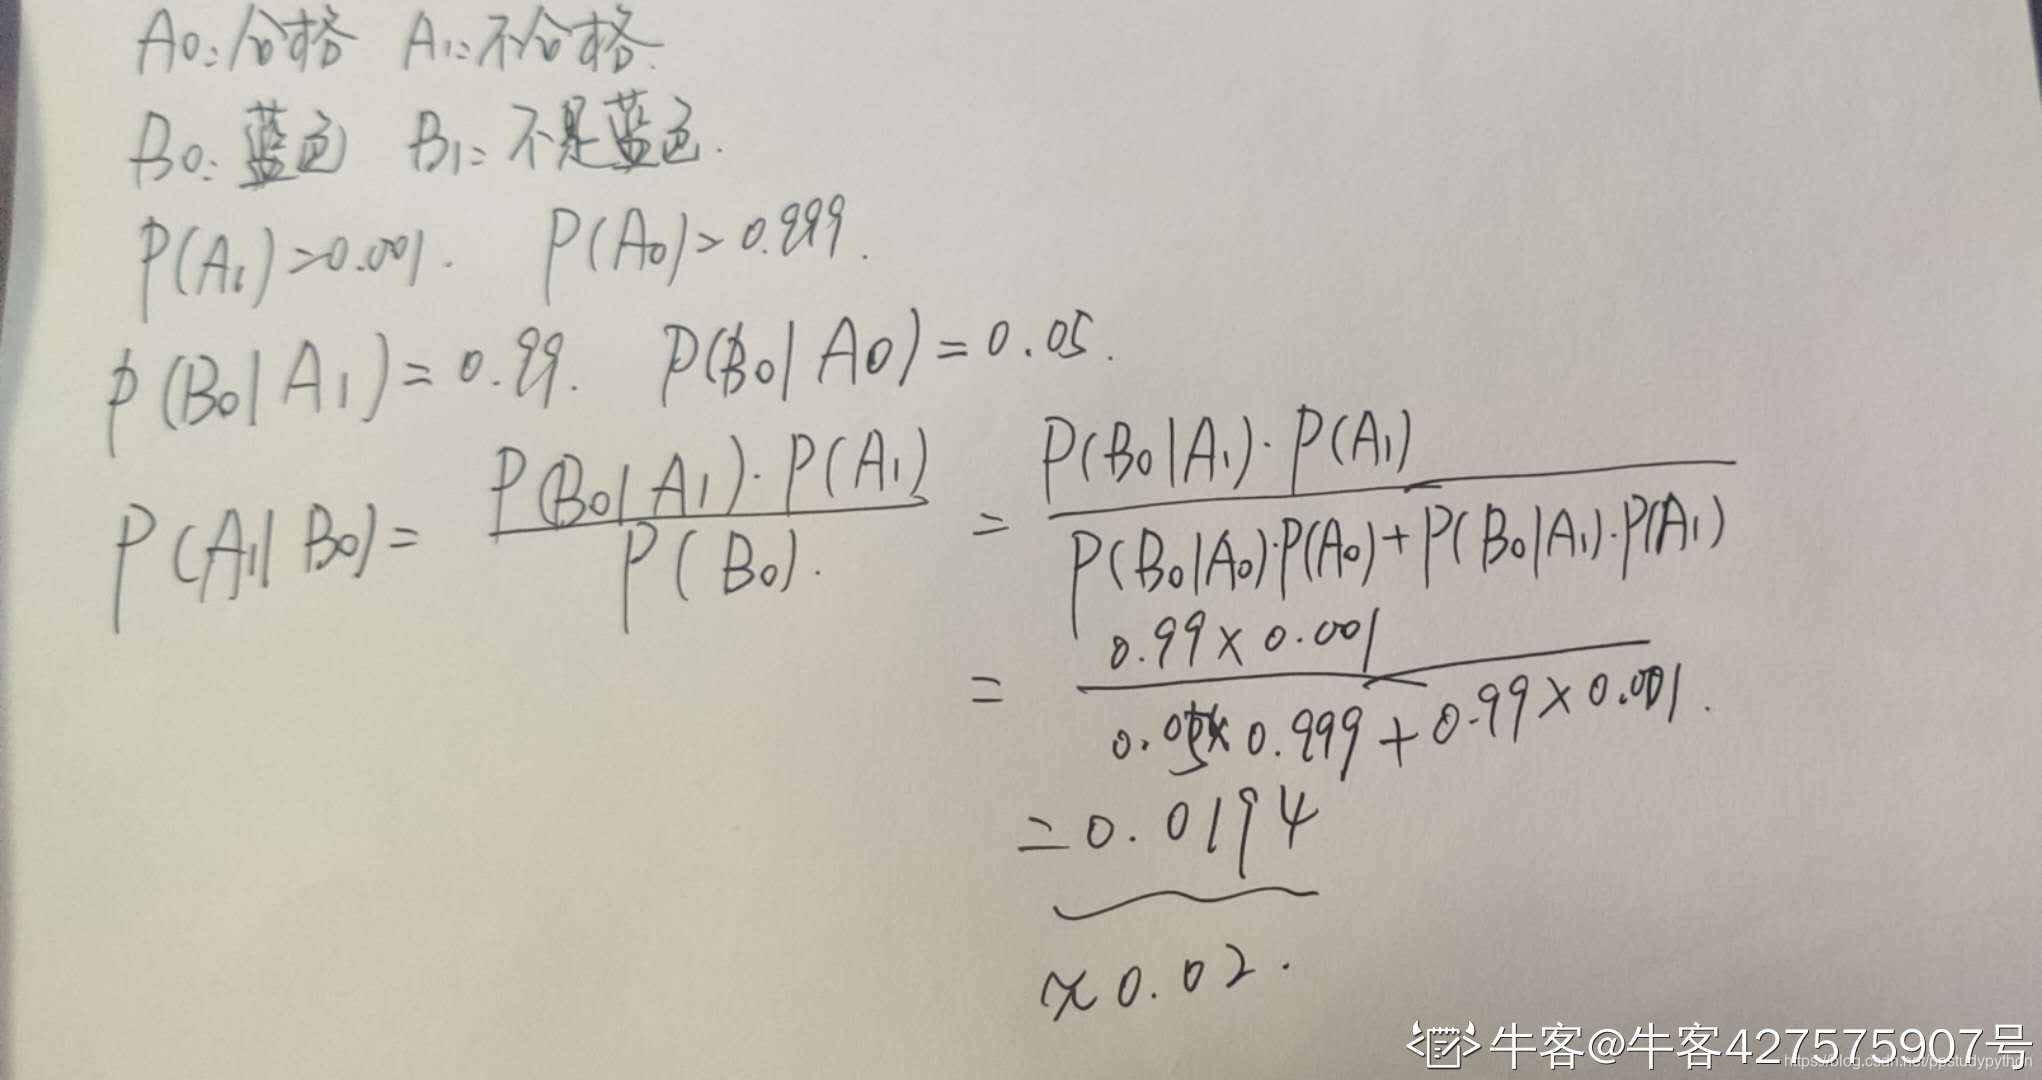 A0:合格 A1:不合格.
B0:蓝色 B1:不是蓝色.
P(A1)=0.001. P(A0)=0.999.
P(B0|A1)=0.99. P(B0|A0)=0.05.
P(A1|B0)= P(B0|A1)·P(A1) / P(B0). = P(B0|A1)·P(A1) / P(B0|A0)·P(A0)+P(B0|A1)·P(A1)
= 0.99×0.001 / 0.05×0.999+0.99×0.001.
=0.0194
≈0.02.
牛客@牛客427575907号
https://blog.csdn.net/ppstudypython